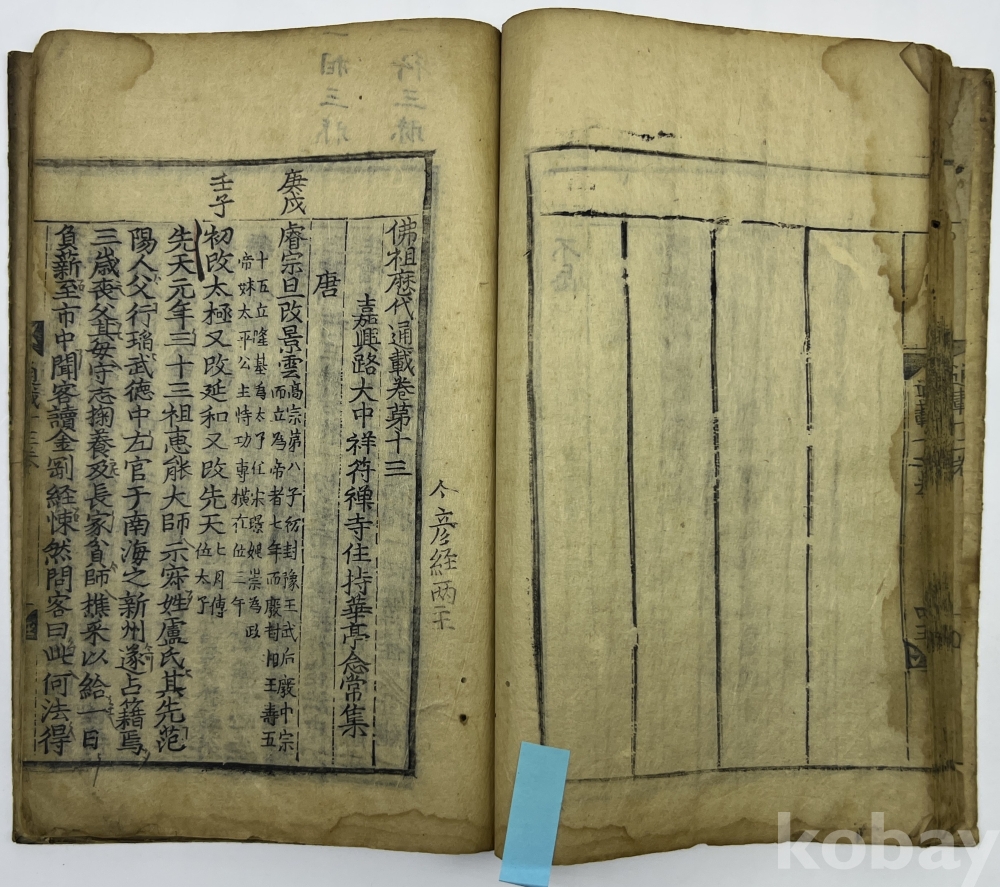 佛祖歷代通載卷第十三
嘉興路大中祥符禅寺住持華亭念常集
唐
庚戌
睿宗旦改景雲
高宗第八子初封豫王武后廢中宗
而立為帝者七年而廢封相王壽五
十五立隆基為太子任宋璟姚崇為政
帝妹太平公主恃功專橫在位二年
壬子
初改太極又改延和又改先天
七月傳
位太子
先天元年三十三祖惠能大師示寂姓盧氏其先范
陽人父行瑫武德中左官于南海之新州遂占籍焉
三歲喪父其母守志掬養及長家貧師樵采以給一日
負薪至市中聞客讀金剛経悚然問客曰此何法得
kobay